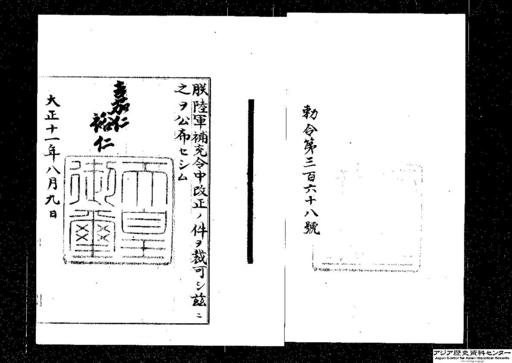 勅令第三百六十八號
朕陸軍補充令中改正ノ件ヲ裁可シ茲ニ
之ヲ公布セシム
嘉仁
裕仁
天皇
御璽
大正十一年八月九日
アジア歴史資料センター
Japan Center for Asian Historical Records